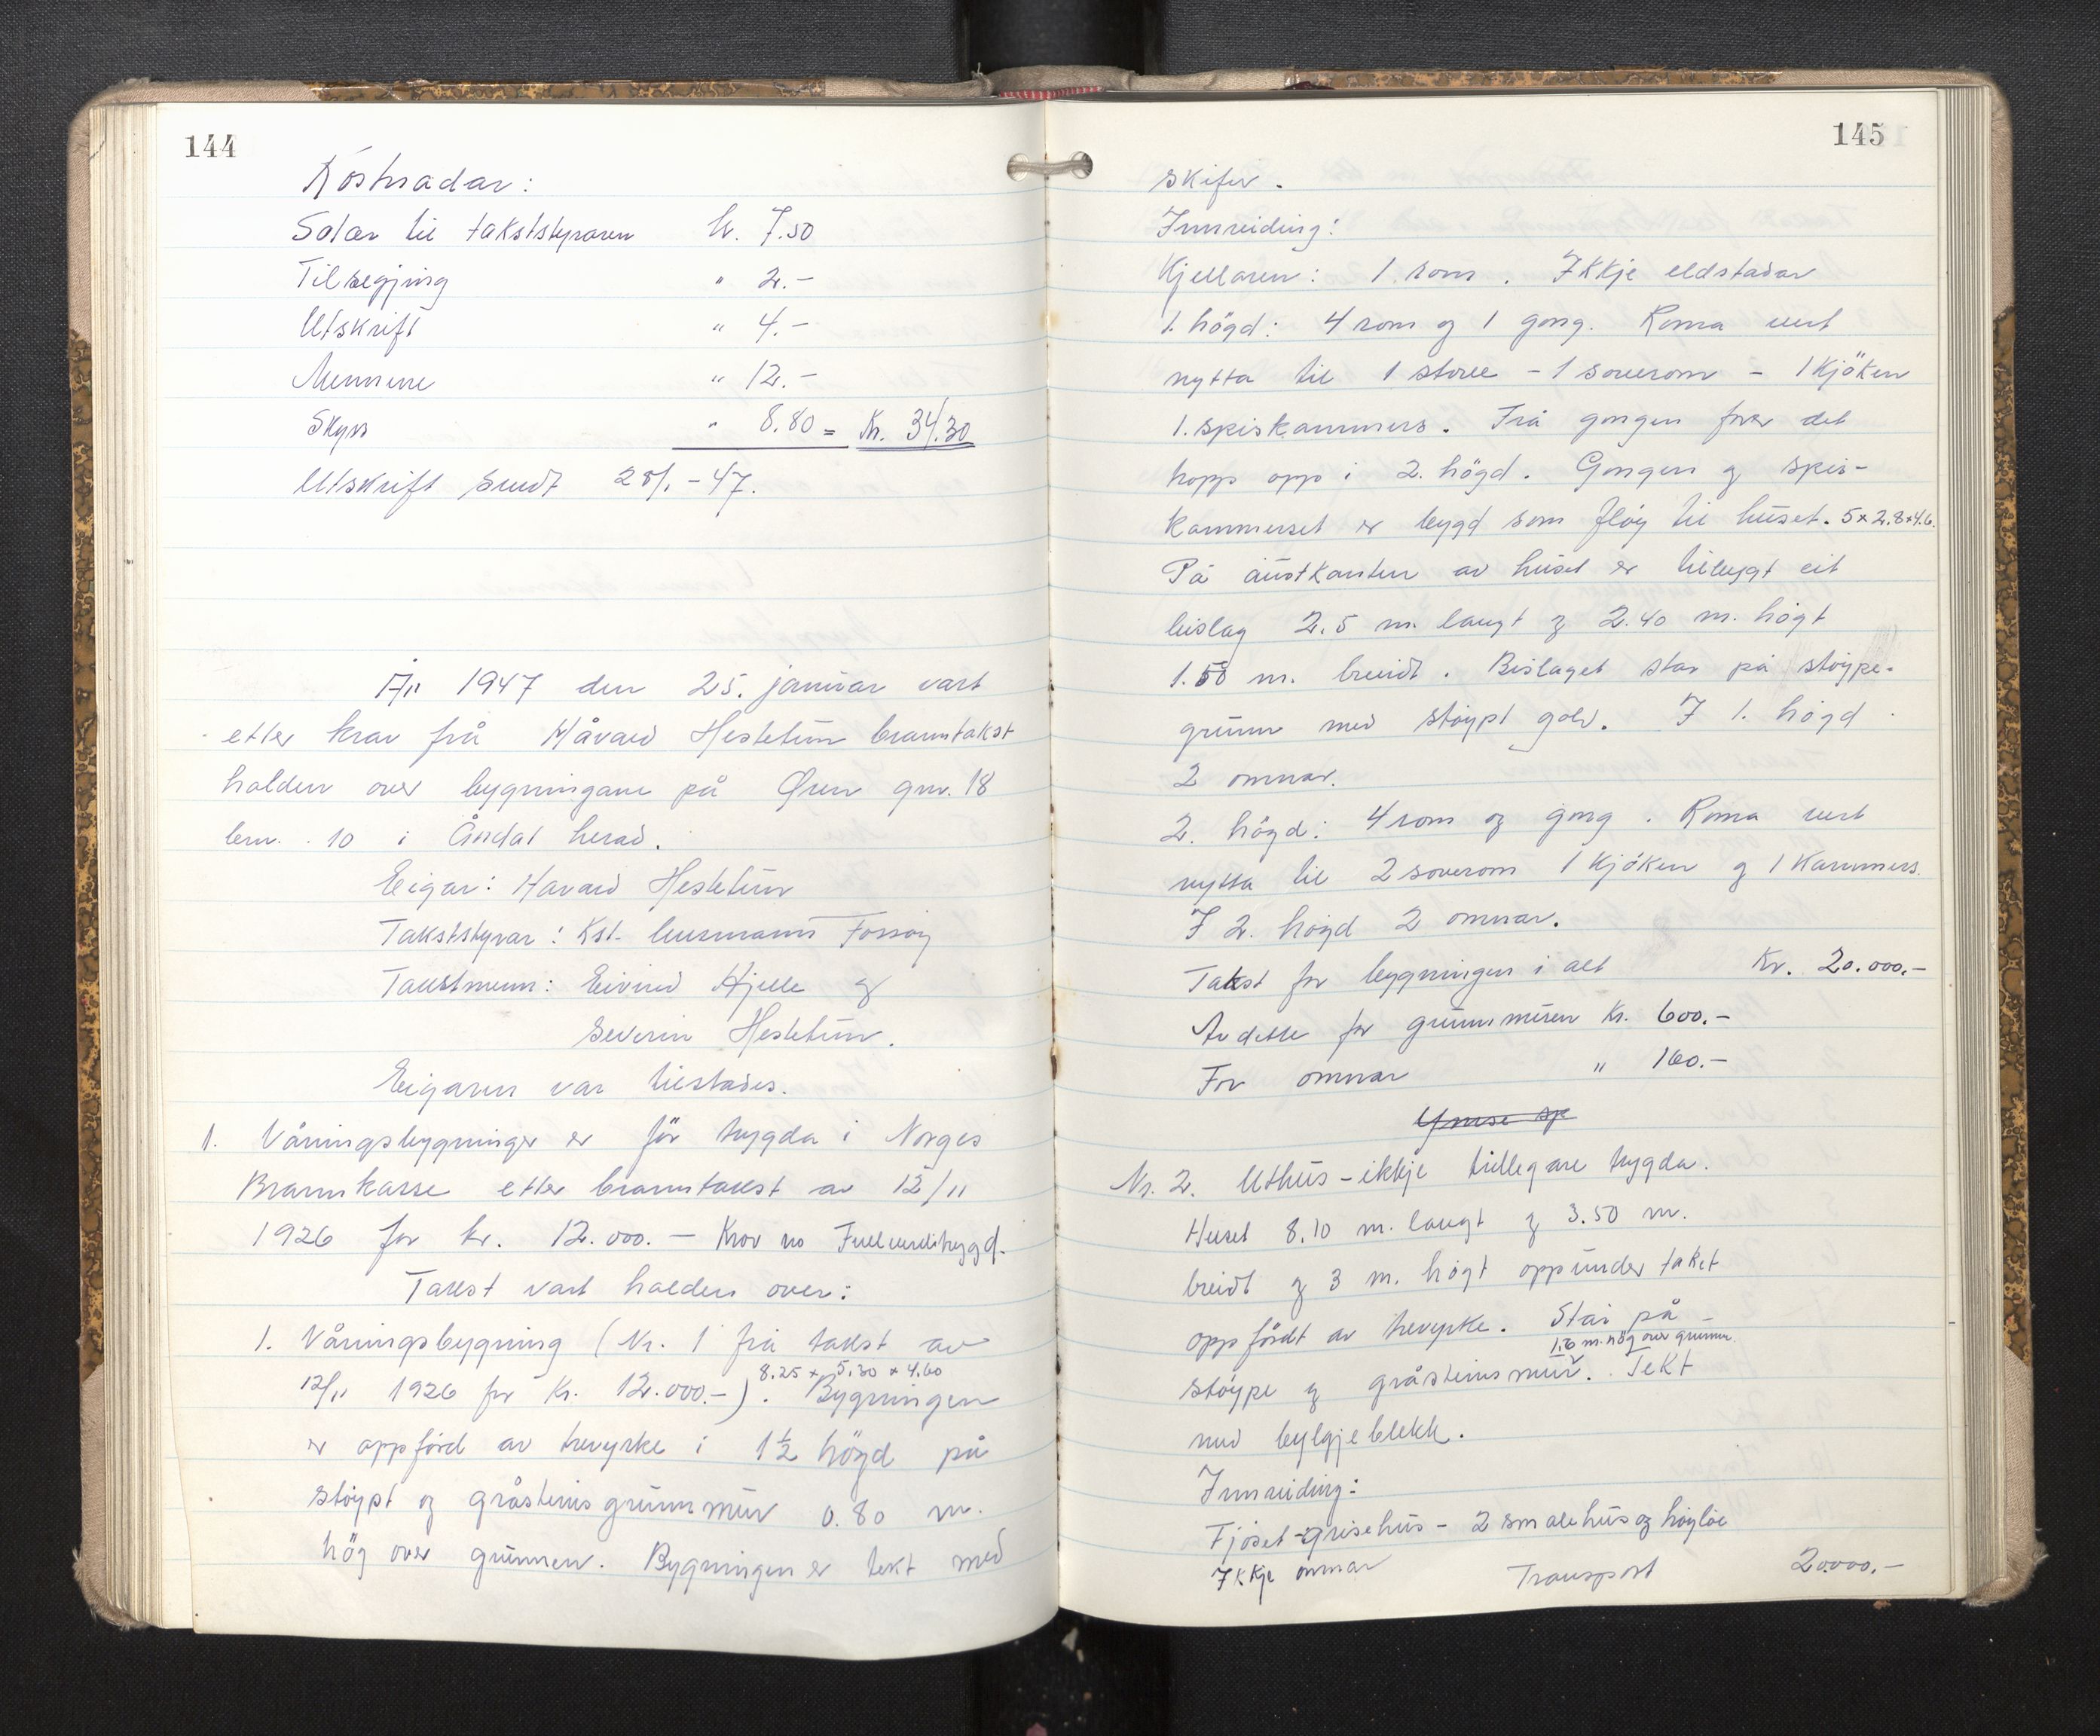 144
Kostnadar:
Salær til takststyraren kr. 7.50
Tilsegjing " 2.-
Utskrift " 4.-
Mennene " 12.-
Skyss " 8.80 = Kr. 34.30
Utskrift sendt 28/1 - 47.
År 1947 den 25. januar vart
etter krav frå Håvard Hestetun branntakst
halden over bygningane på Øren gnr. 18
bnr. 10 i Årdal herad.
Eigar: Havard Hestetun
Takststyrar: Kst. lensmann Forsøy
Takstmenn: Eivind Hjelle og
Severin Hestetun.
Eigaren var tilstades.
1. Våningsbygninger er för trygda i Norges
Brannkasse etter branntakst av 12/11
1926 for kr. 12.000.- Krov no Fullverditrygd.
Takst vart halden over:
1. Våningsbygning (Nr. 1 frå takst av
8.25 x 5.30 x 4.60
12/11 1926 for Kr. 12.000.-). Bygningen
er oppförd av trevyrke i 1½ högd på
stöypt og gråsteins grunnmur 0.80 m.
hög over grunnen. Bygningen er tekt med
145
skifer.
Innreiding:
Kjellaren: 1 rom. Ikkje eldstadar
1. högd: 4 rom og 1 gong. Roma vert
nytta til 1 stove - 1 soverom - 1 Kjöken
1. spiskammers. Frå gongen förer det
tropp opp i 2. högd. Gongen og spis-
kammerset er bygd som flöy til huset. 5 x 2.8 x 4.6.
På austkanten av huset er tilbygt eit
bislag 2.5 m. langt og 2.40 m. högt
1.50 m. breidt. Bislaget står på stöype-
grunn med stöypt golv. I 1. högd
2 omnar.
2. högd: 4 rom og gong. Roma vert
nytta til 2 soverom 1 Kjöken og 1 Kammers.
I 2. högd 2 omnar.
Takst for bygningen i alt Kr. 20.000.-
Av dette for grunnmuren Kr. 600.-
For omnar " 160.-
Ymse sp
Nr. 2. Uthus - ikkje tidlegare trygda.
Huset 8.10 m. langt og 3.50 m.
breidt og 3 m. högt oppunder taket
oppfördt av trevyrke. Står på
1.6 m. hög over grunn.
stöype og gråsteinsmur. Tekt
med bylgjeblekk.
Innreiding:
Fjöset - grisehus - 2 smalehus og höyløe
Ikkje omnar Transport 20000.-